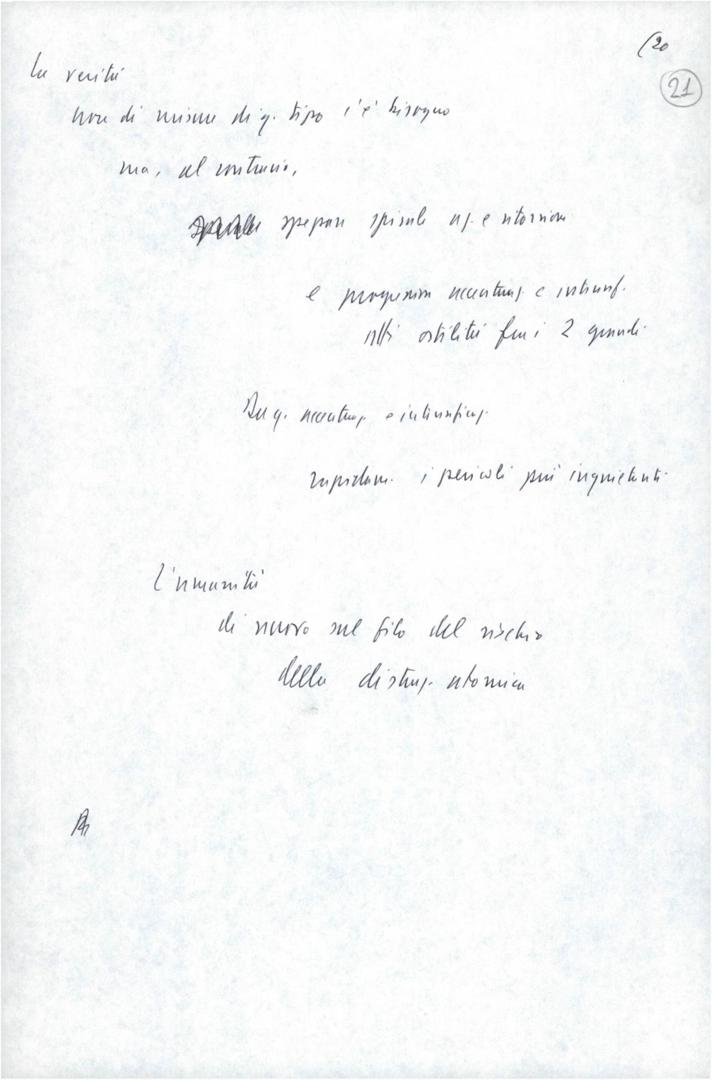 (20
21
La verità
non di misure di q. tipo c'è bisogno
ma, al contrario,
spezzare spirale az. e ritorsioni
e progressiva accentuaz. e intensif.
atti ostilità fra i 2 grandi
Da q. accentuaz. e intensificaz.
rapidam. i pericoli più inquietanti
L'umanità
di nuovo sul filo del rischio
della distruz. atomica